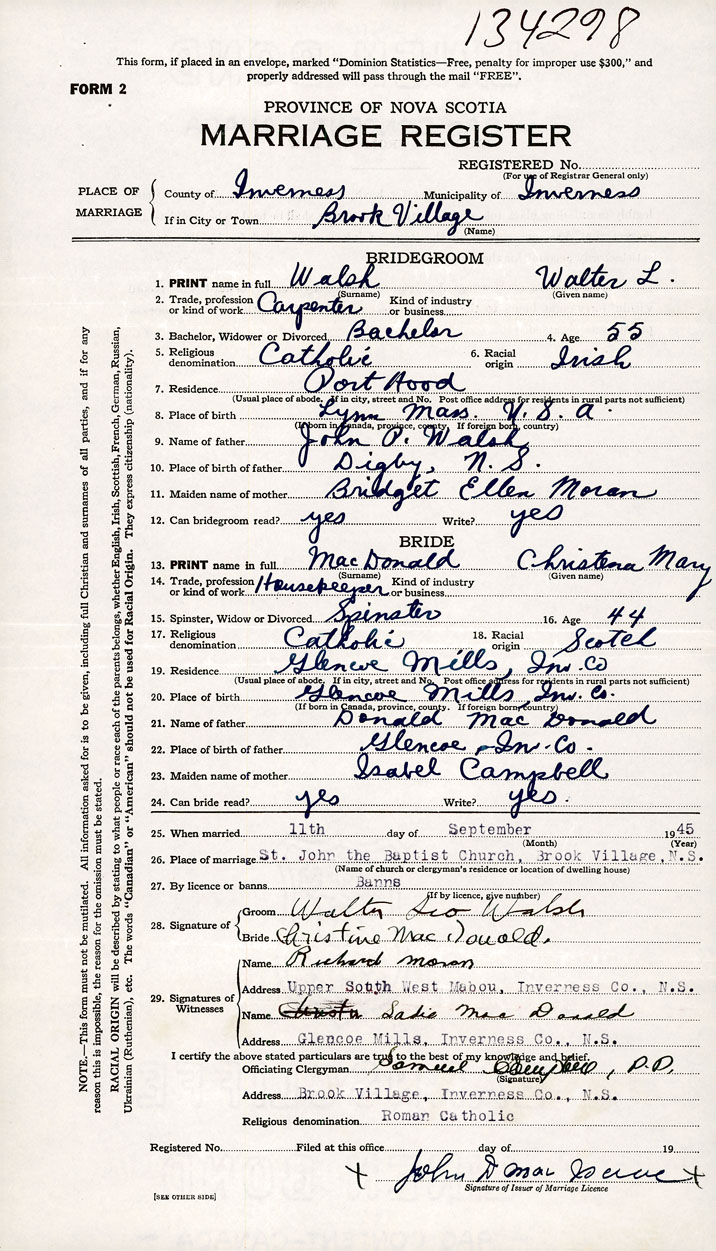 134298
This form, if placed in an envelope, marked "Dominion Statistics—Free, penalty for improper use $300," and
properly addressed will pass through the mail "FREE".
FORM 2
PROVINCE OF NOVA SCOTIA
MARRIAGE REGISTER
REGISTERED No.
(For use of Registrar General only)
PLACE OF MARRIAGE
County of Inverness Municipality of Inverness
If in City or Town Brook Village
(Name)
BRIDEGROOM
1. PRINT name in full Walsh Walter L.
(Surname) (Given name)
2. Trade, profession or kind of work Carpenter Kind of industry or business
3. Bachelor, Widower or Divorced Bachelor 4. Age 55
5. Religious denomination Catholic 6. Racial origin Irish
7. Residence Port Hood
(Usual place of abode. If in city, street and No. Post office address for residents in rural parts not sufficient)
8. Place of birth Lynn Mass. U.S.a.
(If born in Canada, province, county. If foreign born, country)
9. Name of father John P. Walsh
10. Place of birth of father Digby, N.S.
11. Maiden name of mother Bridget Ellen Moran
12. Can bridegroom read? yes Write? yes
BRIDE
13. PRINT name in full MacDonald Christena Mary
(Surname) (Given name)
14. Trade, profession or kind of work Housekeeper Kind of industry or business
15. Spinster, Widow or Divorced Spinster 16. Age 44
17. Religious denomination Catholic 18. Racial origin Scotch
19. Residence Glencoe Mills, Inv. Co
(Usual place of abode. If in city, street and No. Post office address for residents in rural parts not sufficient)
20. Place of birth Glencoe Mills, Inv. Co.
(If born in Canada, province, county. If foreign born, country)
21. Name of father Donald MacDonald
22. Place of birth of father Glencoe, Inv. Co.
23. Maiden name of mother Isabel Campbell
24. Can bride read? yes Write? yes.
25. When married 11th day of September 1945
(Month) (Year)
26. Place of marriage St. John the Baptist Church, Brook Village, N.S.
(Name of church or clergyman's residence or location of dwelling house)
27. By licence or banns Banns
(If by licence, give number)
28. Signature of
Groom Walter Leo Walsh
Bride Christine MacDonald.
29. Signatures of Witnesses
Name Richard Moran
Address Upper South West Mabou, Inverness Co., N.S.
Name Sadie MacDonald
Address Glencoe Mills, Inverness Co., N.S.
I certify the above stated particulars are true to the best of my knowledge and belief.
Officiating Clergyman Samuel Campbell, P.P.
(Signature)
Address Brook Village, Inverness Co., N.S.
Religious denomination Roman Catholic
Registered No. Filed at this office day of 19
John D MacIsaac
Signature of Issuer of Marriage Licence
[SEE OTHER SIDE]
NOTE.—This form must not be mutilated. All information asked for is to be given, including full Christian and surnames of all parties, and if for any
reason this is impossible, the reason for the omission must be stated.
RACIAL ORIGIN will be described by stating to what people or race each of the parents belongs, whether English, Irish, Scottish, French, German, Russian,
Ukrainian (Ruthenian), etc. The words "Canadian" or "American" should not be used for Racial Origin. They express citizenship (nationality).